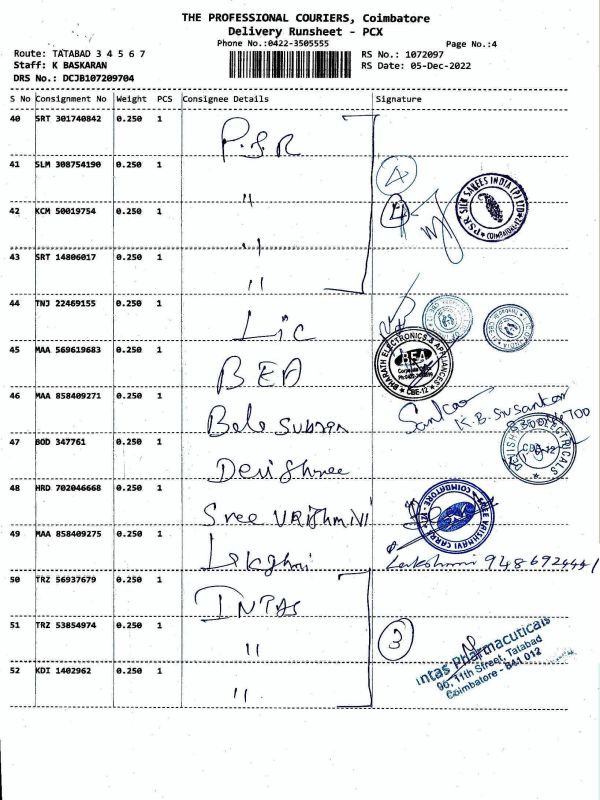 THE PROFESSIONAL COURIERS, Coimbatore
Delivery Runsheet - PCX
Phone No.:0422-3505555 Page No.:4
Route: TATABAD 3 4 5 6 7 RS No.: 1072097
Staff: K BASKARAN RS Date: 05-Dec-2022
DRS No.: DCJB107209704
S No Consignment No Weight PCS Consignee Details Signature
40 SRT 301740842 0.250 1 P.S.R
41 SLM 308754190 0.250 1 " 4
PSR SILK SAREES INDIA (P) LTD COIMBATORE-12
42 KCM 50019754 0.250 1 "
43 SRT 14806017 0.250 1 "
44 TNJ 22469155 0.250 1 LIC
45 MAA 569619683 0.250 1 BEA
BHARATH ELECTRONICS & APPLIANCES BEA CBE-12
46 MAA 858409271 0.250 1 Bala Subram
Sankar K.B. Sri Sankar
47 BOD 347761 0.250 1 Devi Shree
ELECTRICALS CBE-12
48 HRD 702046668 0.250 1 Sree VAIShNAVI
SREE VAISHNAVI COIMBATORE
49 MAA 858409275 0.250 1 Lakshmi
Lakshmi 9486924441
50 TRZ 56937679 0.250 1 INTAS
51 TRZ 53854974 0.250 1 " 3
Intas Pharmacuticals
90, 11th Street, Tatabad
Coimbatore - 641 012
52 KDI 1402962 0.250 1 "